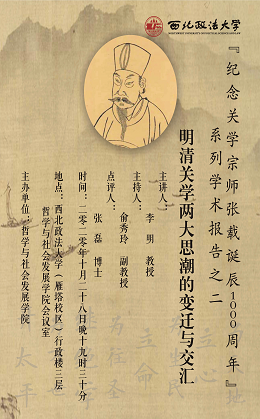 西北政法大学
『纪念关学宗师张载诞辰1000周年』
系列学术报告之二
明清关学两大思潮的变迁与交汇
主讲人：李 明 教授
主持人：俞秀玲 副教授
点评人：张 磊 博士
时间：二〇二〇年十月二十八日晚十九时三十分
地点：西北政法大学（雁塔校区）行政楼三层
哲学与社会发展学院会议室
主办单位：哲学与社会发展学院